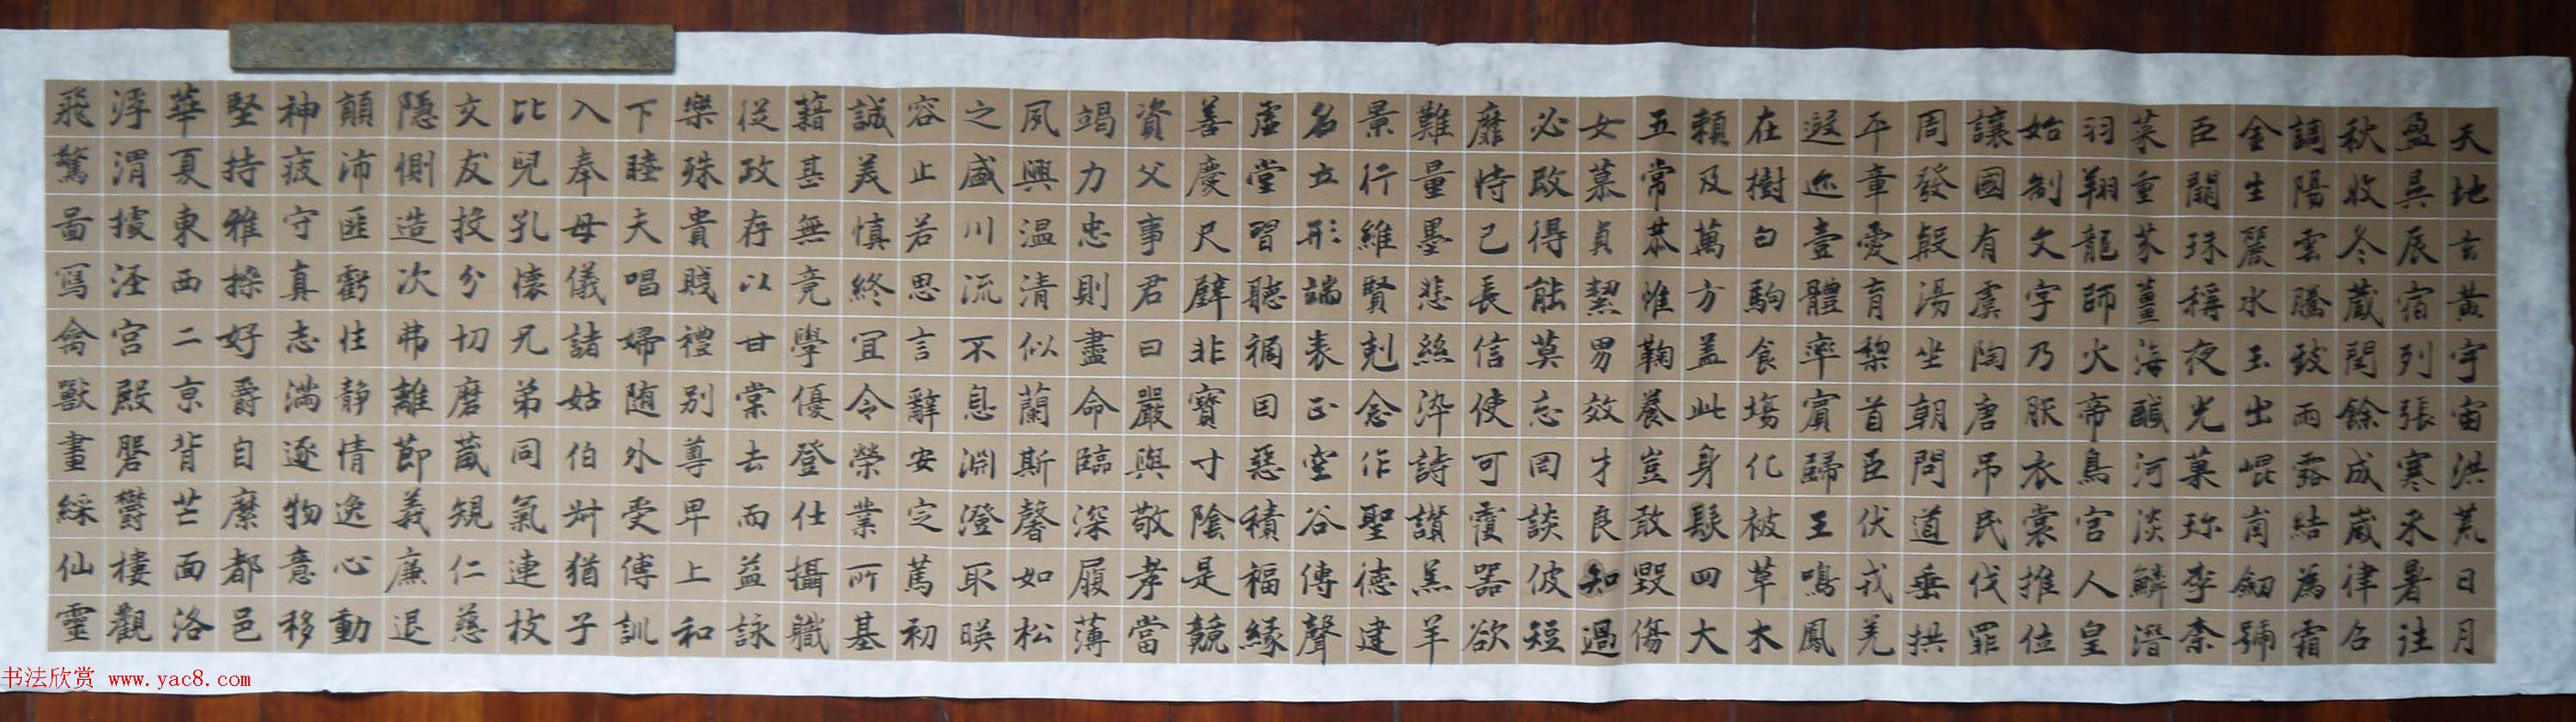 天地玄黃宇宙洪荒日月
盈昃辰宿列張寒来暑往
秋收冬蔵閏餘成歲律召
調陽雲騰致雨露結為霜
金生麗水玉出崐崗劒號
臣闕珠稱夜光菓珎李柰
菜重芥薑海鹹河淡鱗潛
羽翔龍師火帝鳥官人皇
始制文字乃服衣裳推位
讓國有虞陶唐吊民伐罪
周發殷湯坐朝問道垂拱
平章愛育黎首臣伏戎羌
遐迩壹體率賓歸王鳴鳳
在樹白駒食場化被草木
賴及萬方盖此身髮四大
五常恭惟鞠養豈敢毀傷
女慕貞絜男效才良知過
必改得能莫忘罔談彼短
靡恃己長信使可覆器欲
難量墨悲絲染詩讃羔羊
景行維賢剋念作聖德建
名立形端表正空谷傳聲
虛堂習聽禍因惡積福緣
善慶尺璧非寶寸陰是競
資父事君曰嚴與敬孝當
竭力忠則盡命臨深履薄
夙興温清似蘭斯馨如松
之盛川流不息淵澄取暎
容止若思言辭安定篤初
誠美慎終宜令榮業所基
藉甚無竟學優登仕攝職
從政存以甘棠去而益詠
樂殊貴賤禮別尊卑上和
下睦夫唱婦随外受傅訓
入奉母儀諸姑伯叔猶子
比兒孔懷兄弟同氣連枝
交友投分切磨箴規仁慈
隱惻造次弗離節義廉退
顛沛匪虧性静情逸心動
神疲守真志滿逐物意移
堅持雅操好爵自縻都邑
華夏東西二京背芒面洛
浮渭據涇宮殿磐鬱樓觀
飛驚啚寫禽獸畫綵仙靈
书法欣赏 www.yac8.com